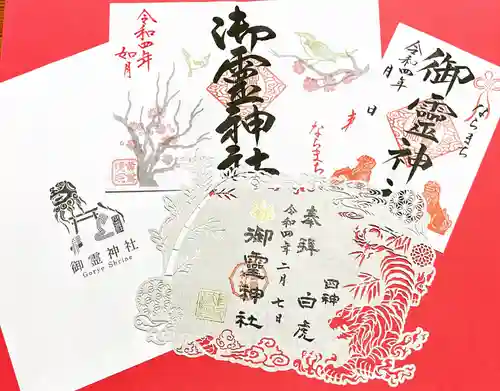 令和四年
如月
御霊神社
ならまち
御霊神社
令和四年
月
日
ならまち
御霊神社
Goryo Shrine
奉拝
令和四年二月七日
御霊神社
四神
白虎